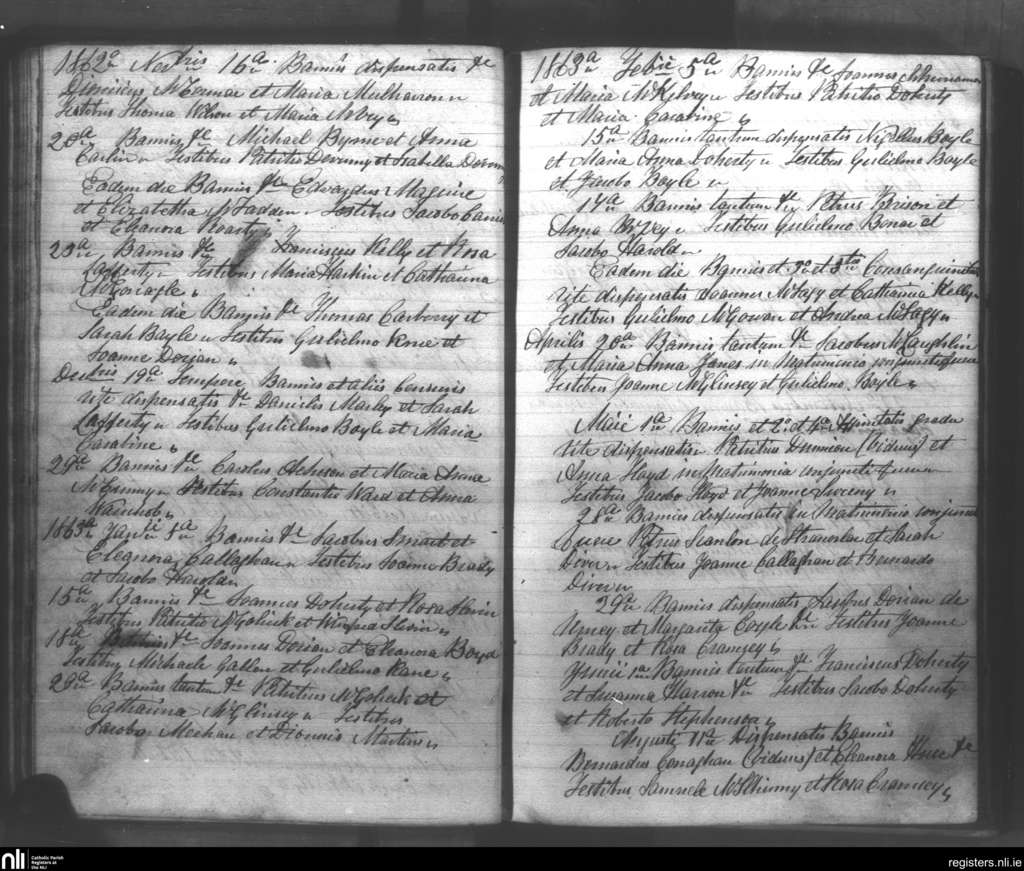 1862a Novbris 16a Bannis dispensatis &c
et Maria Mulhearon
Testibus Thoma Wilson et Maria McVey
20a Bannis &c Michael Byrne et Anna
Carlin Testibus Patritio Devenny et Isabella
Eadem die Bannis &c Edvardus Maguire
et Elizabetha McFadden Testibus Jacobo
et Eleanora Roarty
23a Bannis &c Franciscus Kelly et Rosa
Lafferty Testibus Maria Harkin et Catharina
McGonagle
Eadem die Bannis &c Thomas Carberry et
Sarah Boyle Testibus Gulielmo et
Joanne Dorian
Decbris 19a Tempore, Bannis et aliis Censuris
rite dispensatis &c Danielis Marley et Sarah
Lafferty Testibus Gulielmo Boyle et Maria
Carabine
29a Bannis &c Carolus Acheson et Maria Anna
Testibus Constantio Ward et Anna
1863a Janrii 5a Bannis &c Jacobus Smart et
Eleanora Callaghan Testibus Joanne Brady
et Jacobo Harold
15a Bannis &c Joannes Doherty et Rosa Slevin
Testibus Patritio McGolrick et Winifred Slevin
18a &c Joannes Dorian et Eleanora Boyd
Testibus Michaele Gallen et Gulielmo Kane
29a Bannis tantum &c Patritius McGolrick et
Catharina McGlinsey Testibus
Jacobo Meehan et Dionisis Martin
1863a Febrii 5a Bannis &c Joannes
et Maria McKelvey Testibus Patritio Doherty
et Maria Carabine
15a Bannis tantum dispensatis Nigellus Boyle
et Maria Anna Doherty Testibus Gulielmo Boyle
et Jacobo Boyle
17a Bannis tantum &c Petrus et
Anna McVey Testibus Gulielmo Bonar et
Jacobo Harold
Eadem die Bannis et 3o et 3tio Consanguinitatis
rite dispensatis Joannes et Catharina Kelly
Testibus Gulielmo McGowan et Andrea
Aprilis 20a Bannis tantum &c Jacobus McLaughlin
et Maria Anna Janes in Matrimonio conjunctique
Testibus Joanne McGlinsey et Gulielmo Boyle
Maii 1a Bannis et 2o et 4o Affinitatis gradu
rite dispensatis Patritius (Viduus) et
Anna Floyd in Matrimonia conjuncti fuerunt
Testibus Jacobo Floyd et Joanne Sweeny
28a Bannis dispensatis in Matrimonio
Petrus Scanlon de Stranorlar et Sarah
Diver Testibus Joanne Callaghan et Bernardo
Diver
29a Bannis dispensatis Dorian de
Urney et Margarita Coyle &c Testibus Joanne
Brady et Rosa Cramsey
Junii 1a Bannis tantum &c Franciscus Doherty
et Susanna Harron &c Testibus Jacobo Doherty
et Roberto Stephenson
Augusti 11a Dispensatis Bannis
Bernardus Conaghan (Viduus) et Eleanora &c
Testibus Samuele McIlhinny et Rosa Cramsey
nli
Catholic Parish
Registers at
the NLI
registers.nli.ie